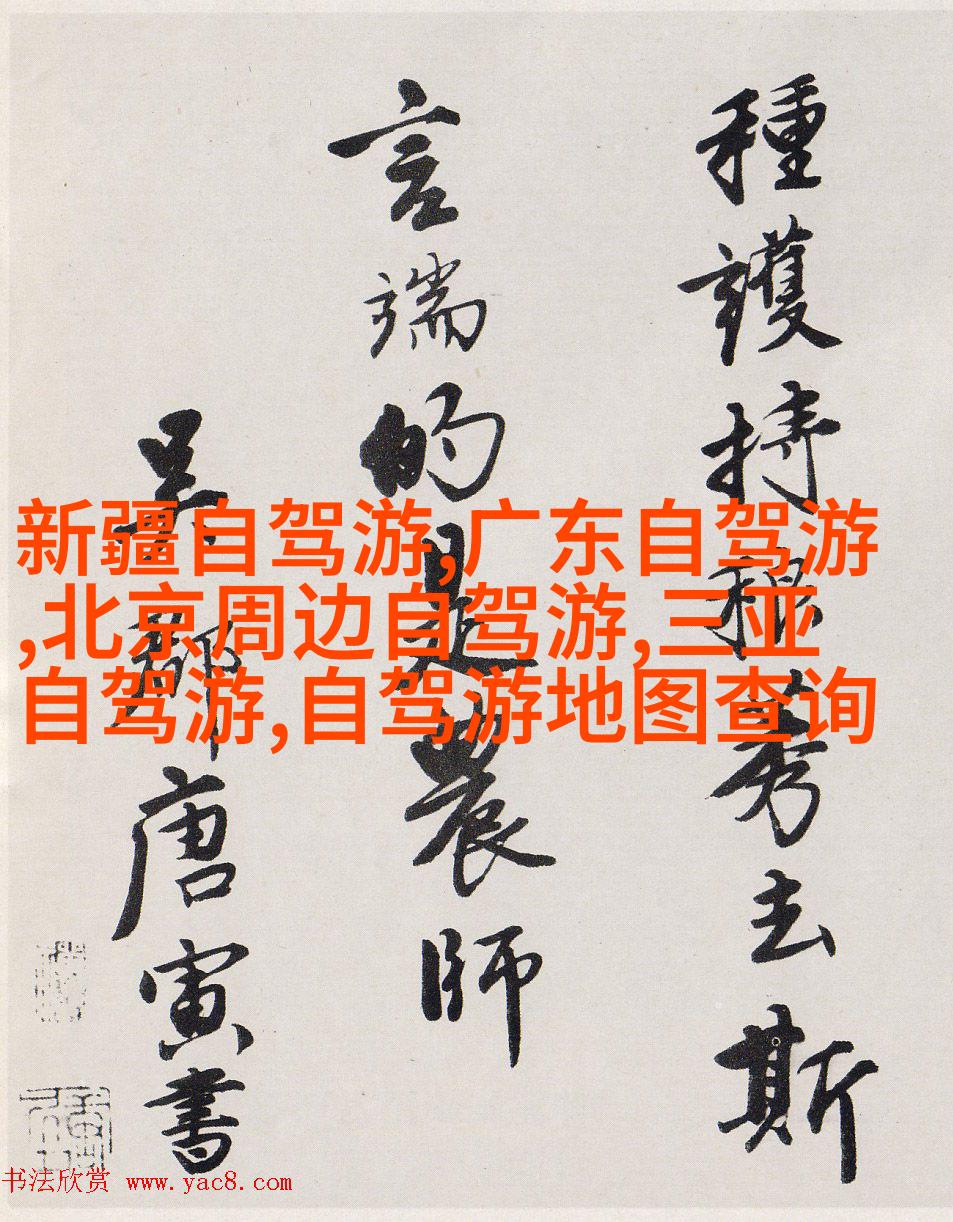 種護持稂莠去斯
言端的是農師
吳郡唐寅書
新疆自驾游,广东自驾游
,北京周边自驾游,三亚
自驾游,自驾游地图查询
书法欣赏 www.yac8.com